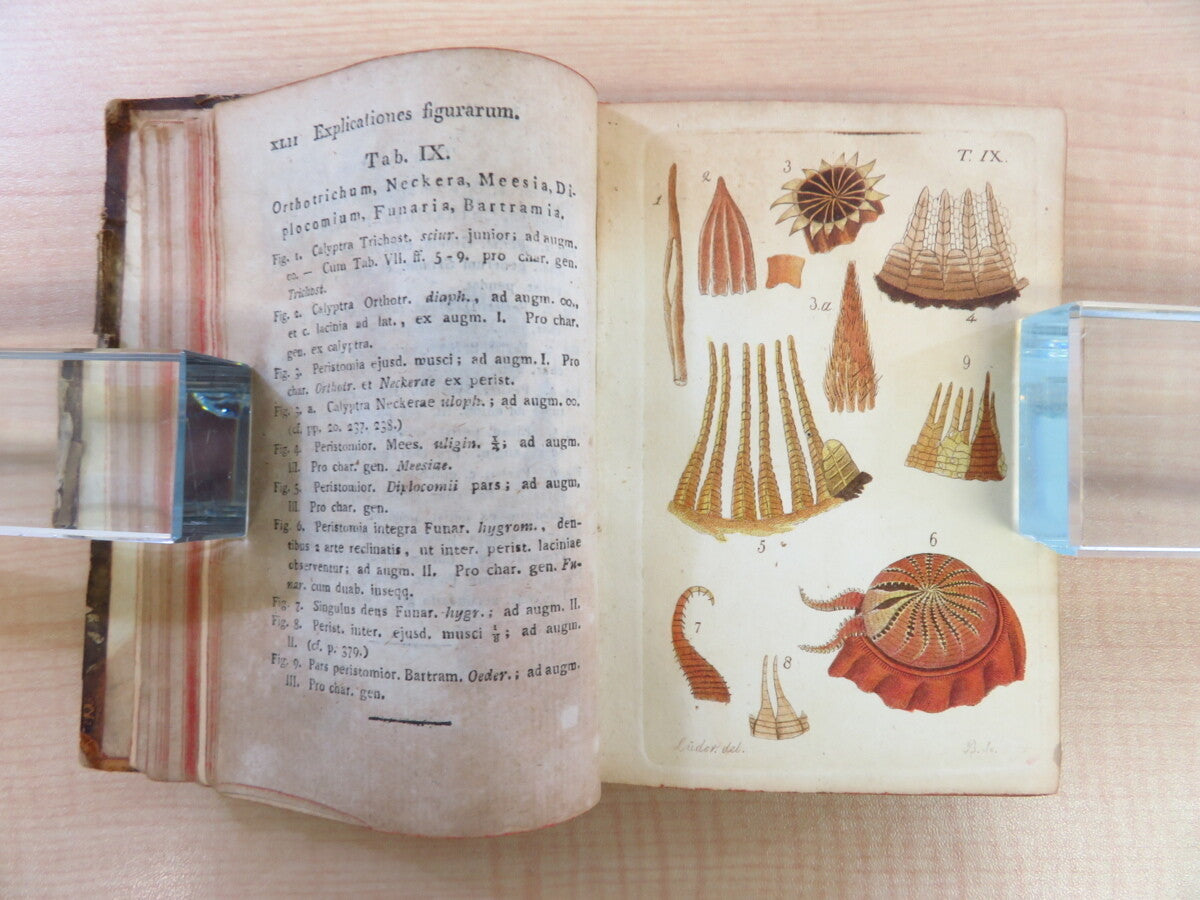 XLII Explicationes figurarum.
Tab. IX.
Orthotrichum, Neckera, Meesia, Di-
plocomium, Funaria, Bartramia.
Fig. 1. Calyptra Trichost. sciur. junior; ad augm.
∞. — Cum Tab. VII. ff. 5-9. pro char. gen.
Trichost.
Fig. 2. Calyptra Orthotr. diaph., ad augm. ∞.,
et c. lacinia ad lat., ex augm. I. Pro char.
gen. ex calyptra.
Fig. 3. Peristomia ejusd. musci; ad augm. I. Pro
char. Orthotr. et Neckerae ex perist.
Fig. 3. a. Calyptra Neckerae uloph.; ad augm. ∞.
(cf. pp. 20. 237. 238.)
Fig. 4. Peristomior. Mees. uligin. ; ad augm.
III. Pro char. gen. Meesiae.
Fig. 5. Peristomior. Diplocomii pars; ad augm.
III. Pro char. gen.
Fig. 6. Peristomia integra Funar. hygrom., den-
tibus 2 arte reclinatis, ut inter. perist. laciniae
observentur; ad augm. II. Pro char. gen. Fu-
nar. cum duab. inseqq.
Fig. 7. Singulus dens Funar. hygr.; ad augm. II.
Fig. 8. Perist. inter. ejusd. musci ⅛; ad augm.
II. (cf. p. 379.)
Fig. 9. Pars peristomior. Bartram. Oeder.; ad augm.
III. Pro char. gen.
T. IX.
1
2
3
3.a
4
9
5
6
7
8
Lüder. del.
B. Sc.